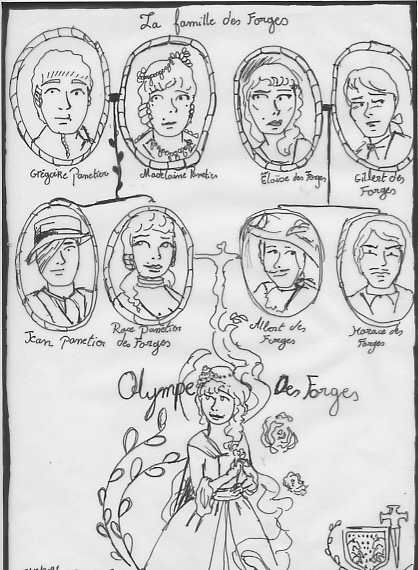 La famille des Forges
Grégoire Panetier
Madelaine Panetier
Éloïse des Forges
Gillert des
Forges
Jean Panetier
Rose Panetier
des Forges
Albert des
Forges
Horace des
Forges
Olympe Des Forges